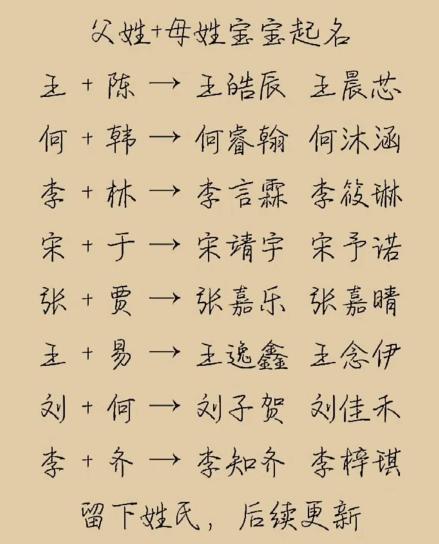 父姓+母姓宝宝起名
王 + 陈 → 王皓辰 王晨芯
何 + 韩 → 何睿翰 何沐涵
李 + 林 → 李言霖 李筱琳
宋 + 于 → 宋靖宇 宋予诺
张 + 贾 → 张嘉乐 张嘉晴
王 + 易 → 王逸鑫 王念伊
刘 + 何 → 刘子贺 刘佳禾
李 + 齐 → 李知齐 李梓琪
留下姓氏，后续更新